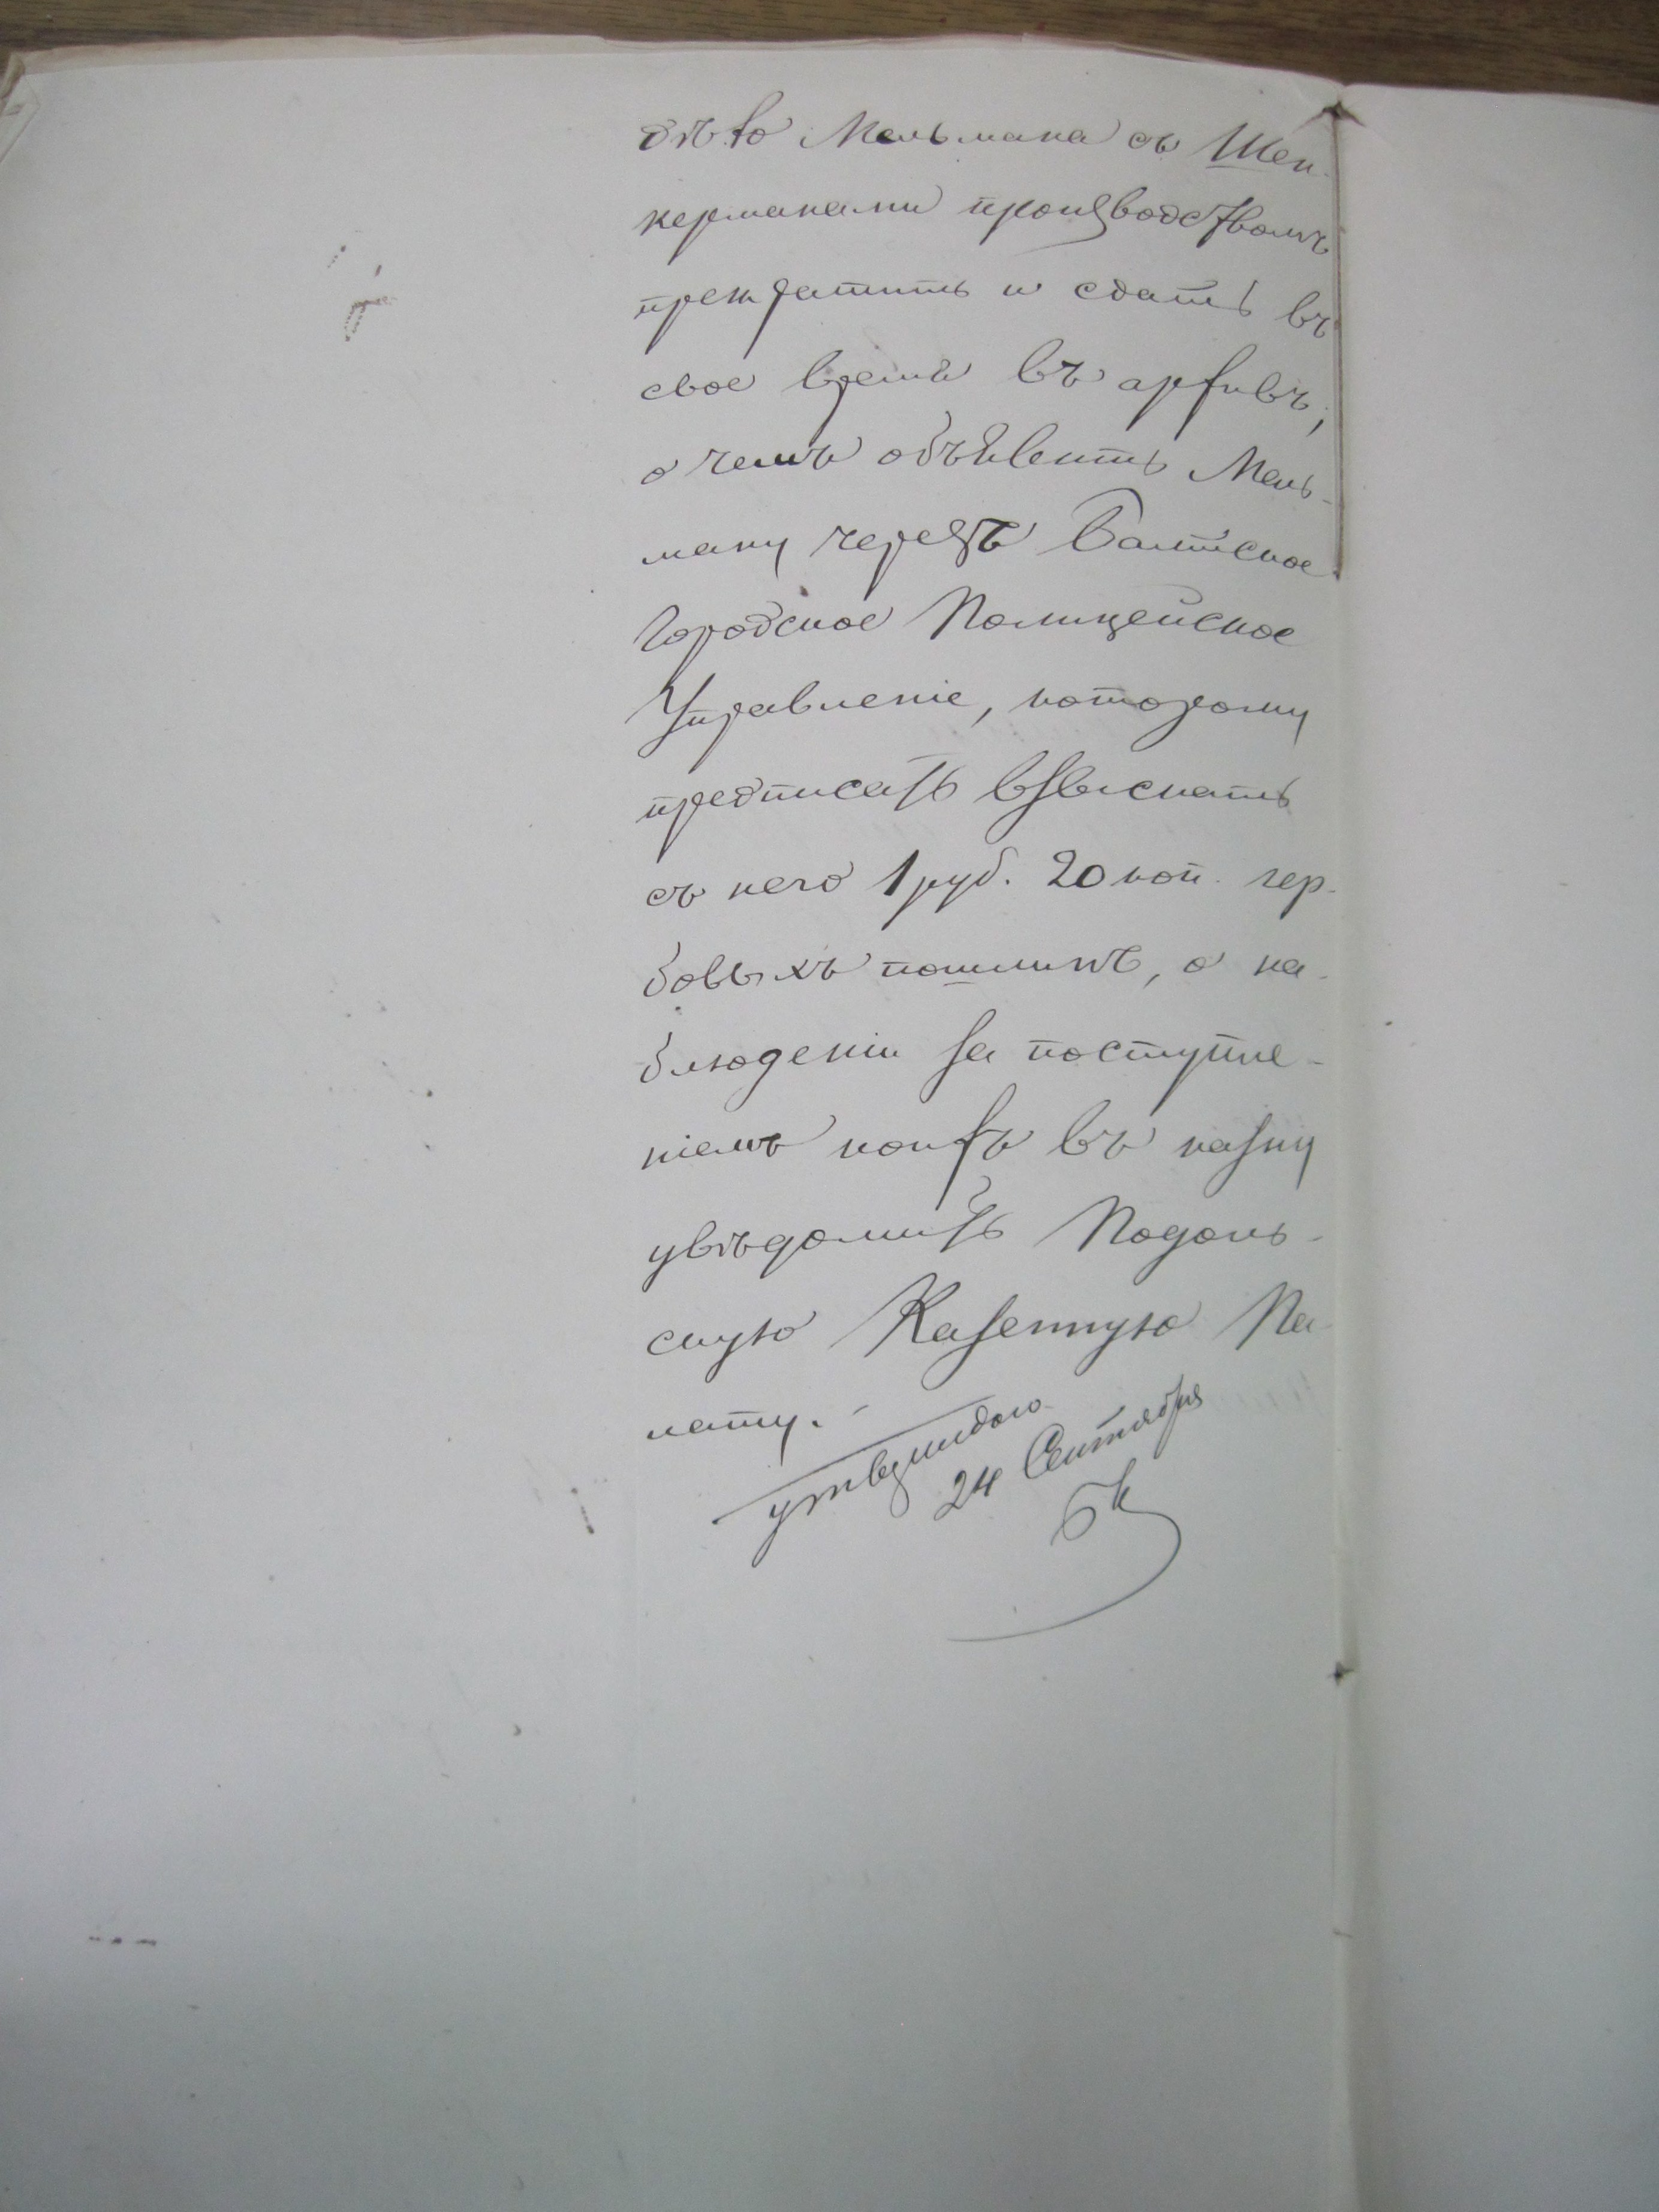 дѣло Мельмана съ Шен-
керманами производствомъ
прекратить и сдать въ
свое время въ архивъ,
о чемъ объявить Мель-
ману чрезъ Балтское
Городское Полицейское
Управленіе, которому
предписать взыскать
съ него 1 руб. 20 коп. гер-
бовыхъ пошлинъ, о на-
блюденіи за поступле-
ніемъ коихъ въ казну
увѣдомить Подоль-
скую Казенную Па-
лату.
24 Сентября